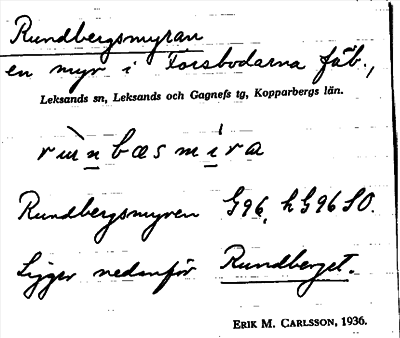 Rundbergsmyran
en myr i Forsbodarna fäb.,
Leksands sn, Leksands och Gagnefs tg, Kopparbergs län.
Rundbergsmyren G96, hG96SO.
Ligger nedanför Rundberget.
ERIK M. CARLSSON, 1936.